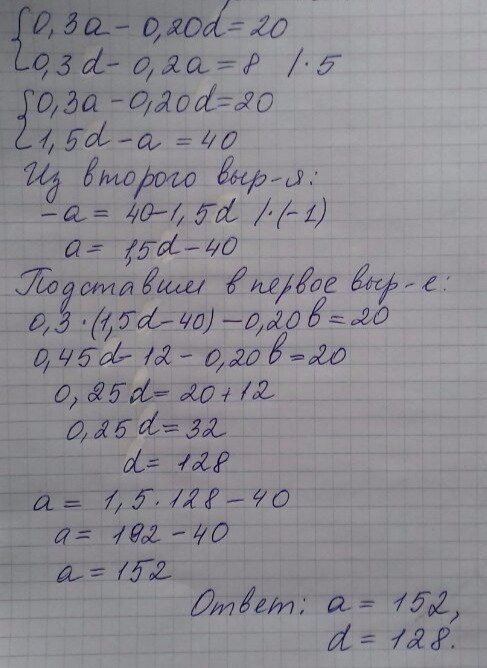 0,3a - 0,20d = 20
0,3d - 0,2a = 8 /·5
0,3a - 0,20d = 20
1,5d - a = 40
Из второго выр-я:
-a = 40-1,5d /·(-1)
a = 1,5d - 40
Подставим в первое выр-е:
0,3·(1,5d-40) - 0,20в = 20
0,45d - 12 - 0,20в = 20
0,25d = 20 + 12
0,25d = 32
d = 128
a = 1,5·128 - 40
a = 192 - 40
a = 152
Ответ: a = 152,
d = 128.